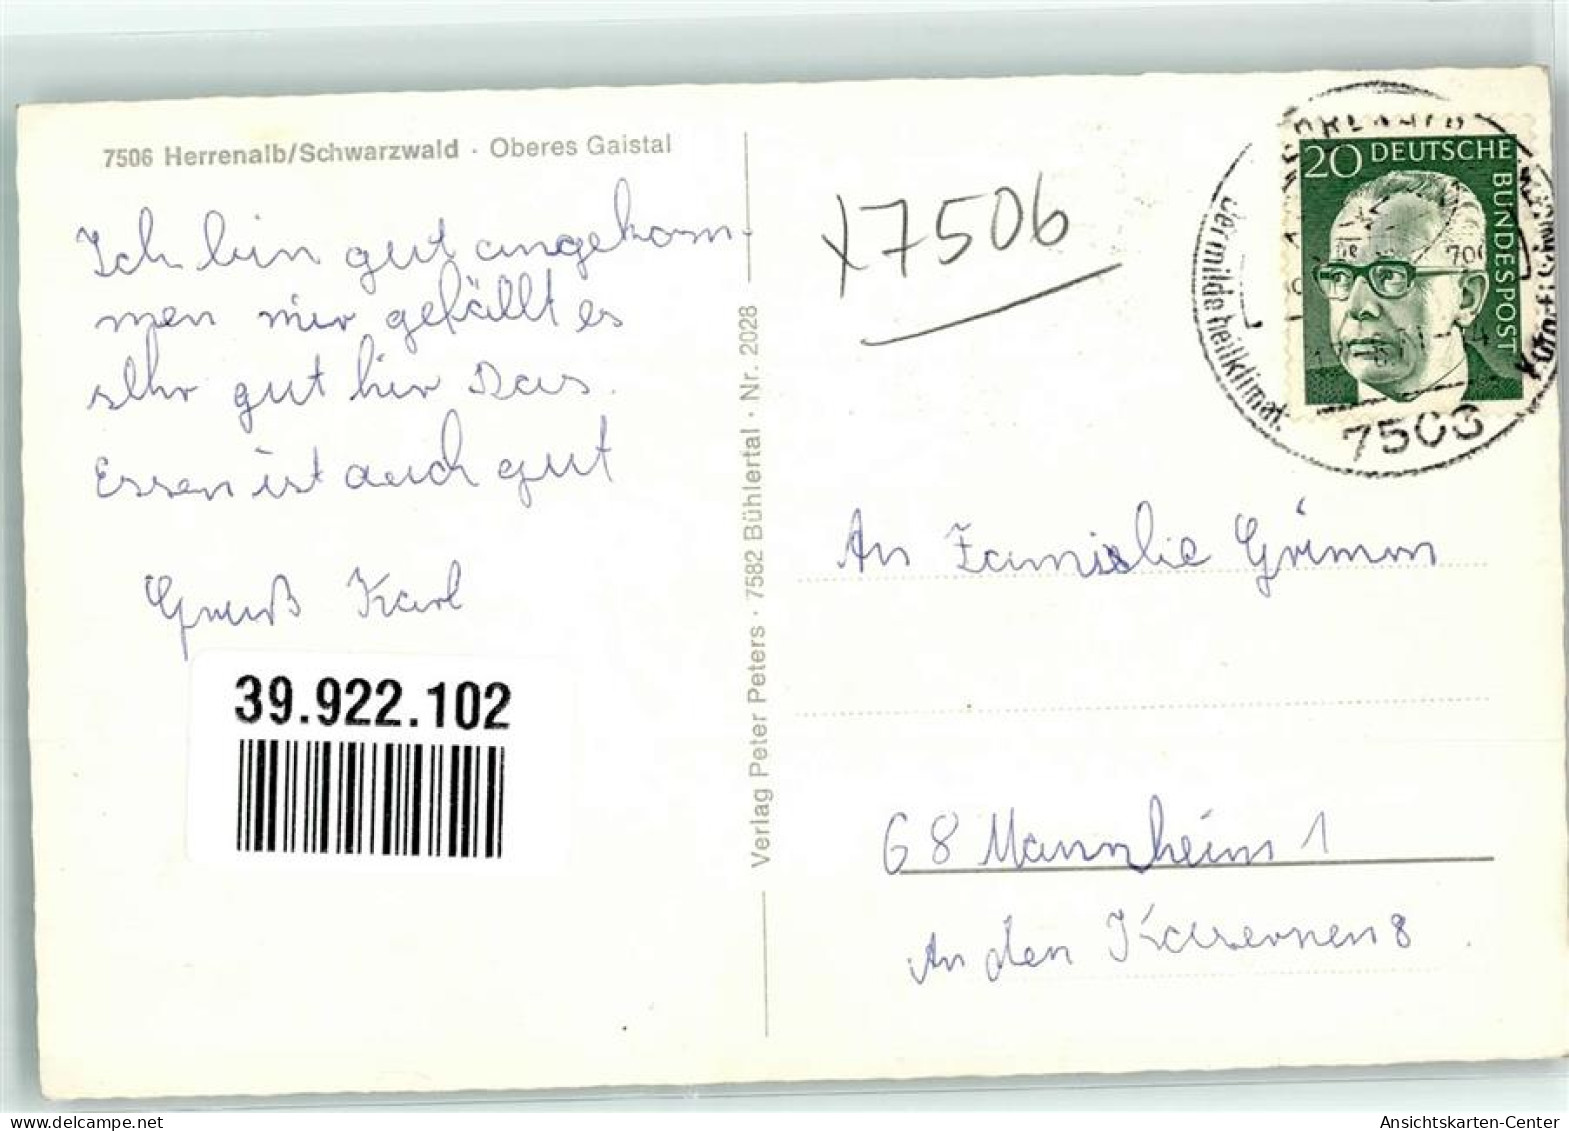 7506 Herrenalb/Schwarzwald · Oberes Gaistal
Ich bin gut angekom-
men mir gefällt es
sehr gut hir Das
Essen ist auch gut
Gruß Karl
39.922.102
Verlag Peter Peters · 7582 Bühlertal · Nr. 2028
x7506
20 DEUTSCHE
BUNDESPOST
der milde heilklimat.
7506
An Familie Grimm
68 Mannheim 1
An den Kasernen 8
delcampe.net
Ansichtskarten-Center